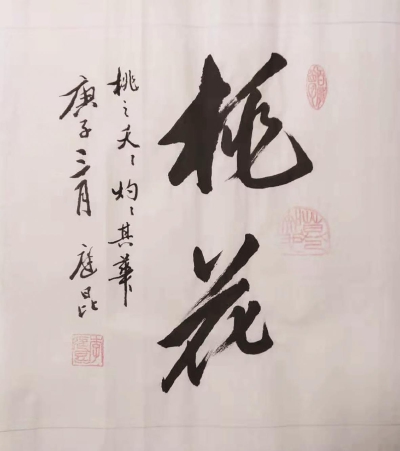 桃花
桃之夭々灼々其華
庚子三月 庭昆